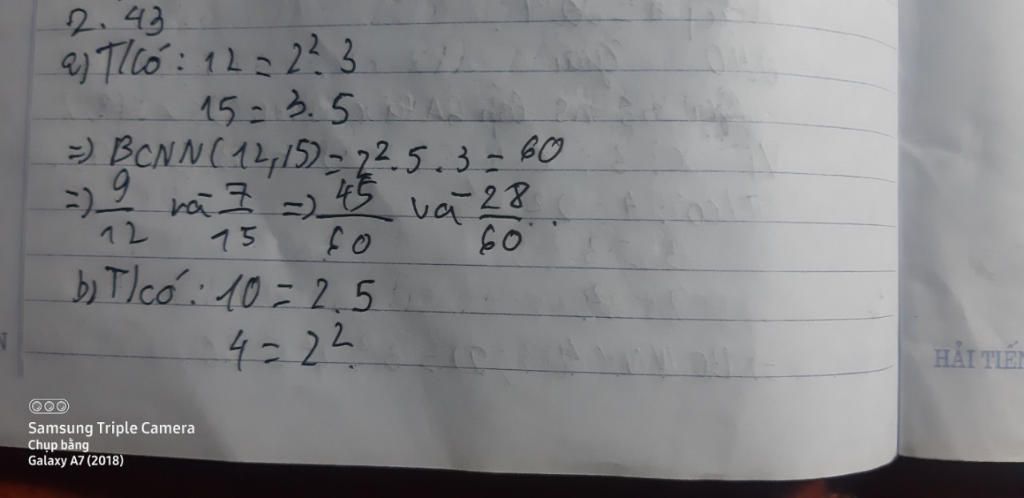 2.43
a) T/có: 12 = 2². 3
15 = 3.5
=> BCNN(12,15) = 2².5.3 = 60
=> 9/12 và 7/15 => 45/60 và 28/60.
b) T/có: 10 = 2.5
4 = 2².
HẢI TIẾN
Samsung Triple Camera
Chụp bằng
Galaxy A7 (2018)